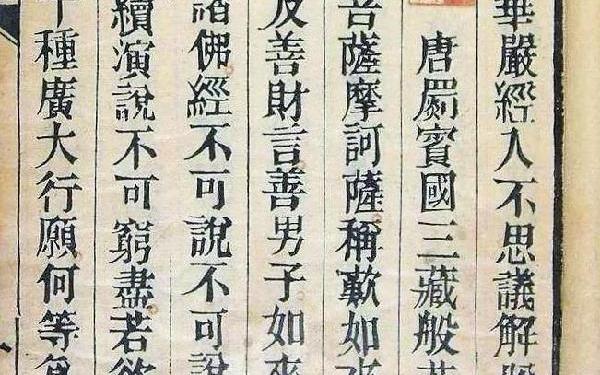 華嚴經入不思議解
唐罽賓國三藏般若
菩薩摩訶薩稱歎如來
及善財言善男子如來
諸佛經不可說不可說
續演說不可窮盡若欲
十種廣大行願何等為